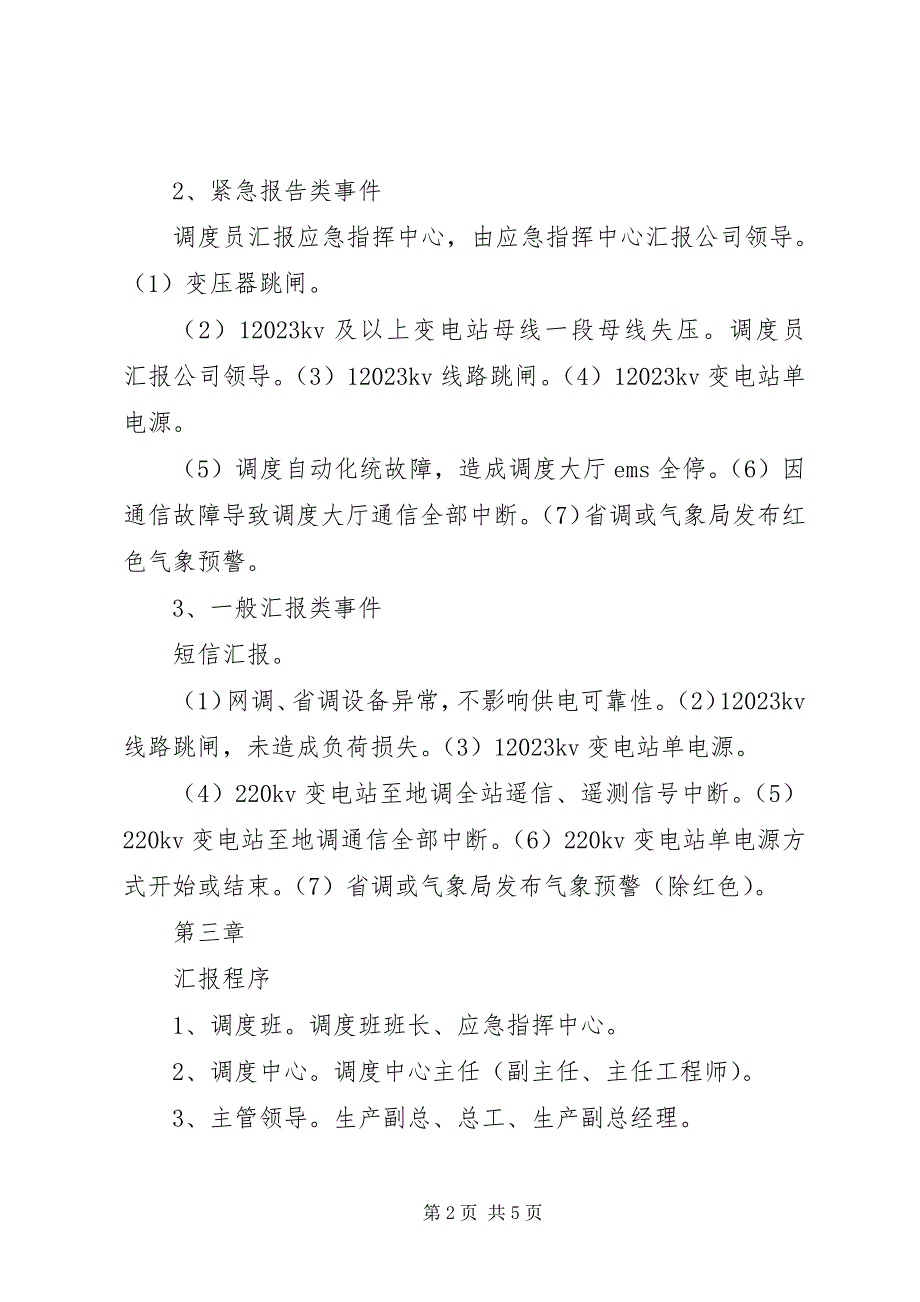 2、紧急报告类事件
调度员汇报应急指挥中心，由应急指挥中心汇报公司领导。
（1）变压器跳闸。
（2）12023kv 及以上变电站母线一段母线失压。调度员
汇报公司领导。（3）12023kv 线路跳闸。（4）12023kv 变电站单
电源。
（5）调度自动化统故障，造成调度大厅 ems 全停。（6）因
通信故障导致调度大厅通信全部中断。（7）省调或气象局发布红
色气象预警。
3、一般汇报类事件
短信汇报。
（1）网调、省调设备异常，不影响供电可靠性。（2）12023kv
线路跳闸，未造成负荷损失。（3）12023kv 变电站单电源。
（4）220kv 变电站至地调全站遥信、遥测信号中断。（5）
220kv 变电站至地调通信全部中断。（6）220kv 变电站单电源方
式开始或结束。（7）省调或气象局发布气象预警（除红色）。
第三章
汇报程序
1、调度班。调度班班长、应急指挥中心。
2、调度中心。调度中心主任（副主任、主任工程师）。
3、主管领导。生产副总、总工、生产副总经理。
第 2 页 共 5 页